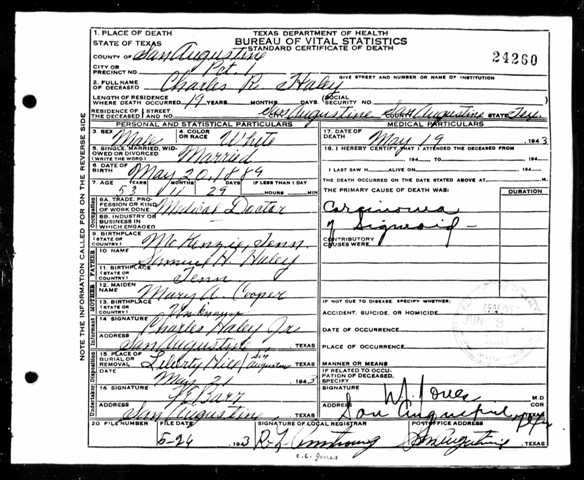 TEXAS DEPARTMENT OF HEALTH
BUREAU OF VITAL STATISTICS
STANDARD CERTIFICATE OF DEATH
24260
1. PLACE OF DEATH
STATE OF TEXAS
COUNTY OF San Augustine
CITY OR PRECINCT NO. Pct. 1
GIVE STREET AND NUMBER OR NAME OF INSTITUTION
2. FULL NAME OF DECEASED Charles R. Haley
LENGTH OF RESIDENCE WHERE DEATH OCCURRED 19 YEARS MONTHS DAYS SOCIAL SECURITY NO.
RESIDENCE OF THE DECEASED STREET NO. San Augustine San Augustine STATE Tex.
PERSONAL AND STATISTICAL PARTICULARS
3. SEX Male 4. COLOR OR RACE White
5. SINGLE, MARRIED, WIDOWED OR DIVORCED (WRITE THE WORD) Married
6. DATE OF BIRTH May 20, 1889
7. AGE YEARS 53 MONTHS 11 DAYS 29 IF LESS THAN 1 DAY HOURS MIN.
8A. TRADE, PROFESSION OR KIND OF WORK DONE Medical Doctor
8B. INDUSTRY OR BUSINESS IN WHICH ENGAGED
9. BIRTHPLACE (STATE OR COUNTRY) McKenzie, Tenn.
10 NAME Samuel H. Haley
11. BIRTHPLACE (STATE OR COUNTRY) Tenn
12. MAIDEN NAME Mary A. Cooper
13. BIRTHPLACE (STATE OR COUNTRY) Unknown
14 SIGNATURE Charles Haley Jr.
ADDRESS San Augustine TEXAS
15 PLACE OF BURIAL OR REMOVAL Liberty Hill San Augustine TEXAS
DATE May 21 1943
16 SIGNATURE
ADDRESS San Augustine TEXAS
MEDICAL PARTICULARS
17. DATE OF DEATH May 19 1943
18. I HEREBY CERTIFY THAT I ATTENDED THE DECEASED FROM
194 TO 194
I LAST SAW H ALIVE ON 194
THE DEATH OCCURRED ON THE DATE STATED ABOVE AT M.
THE PRIMARY CAUSE OF DEATH WAS: DURATION
Carcinoma
of Sigmoid
CONTRIBUTORY CAUSES WERE:
IF NOT DUE TO DISEASE, SPECIFY WHETHER:
ACCIDENT, SUICIDE, OR HOMICIDE
DATE OF OCCURRENCE
PLACE OF OCCURRENCE
MANNER OR MEANS
IF RELATED TO OCCUPATION OF DECEASED, SPECIFY
SIGNATURE W. Jones M.D
ADDRESS San Augustine Texas
20 FILE NUMBER FILE DATE 5-26 1943 SIGNATURE OF LOCAL REGISTRAR R. L. Armstrong POST OFFICE ADDRESS San Augustine TEXAS
NOTE ALL INFORMATION CALLED FOR ON THE REVERSE SIDE
Occupation
FATHER
MOTHER
Informant
Undertaker
Disposition